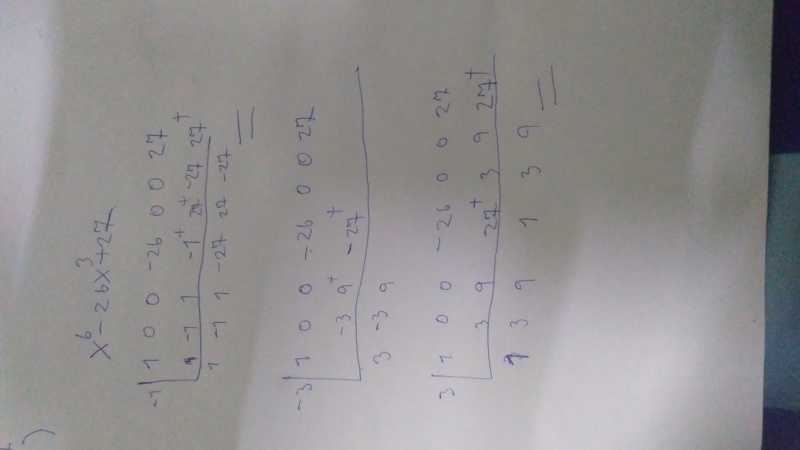 x⁶ - 26x³ + 27
-1 | 1 0 0 -26 0 0 27
-1 1 -1⁺ 27⁺ -27 27⁺
1 -1 1 -27 27 -27
-3 | 1 0 0 -26 0 0 27
-3 9⁺ -27⁺
3 -3 9
3 | 1 0 0 -26 0 0 27
3 9 27⁺ 3 9 27⁺
3 9 1 3 9